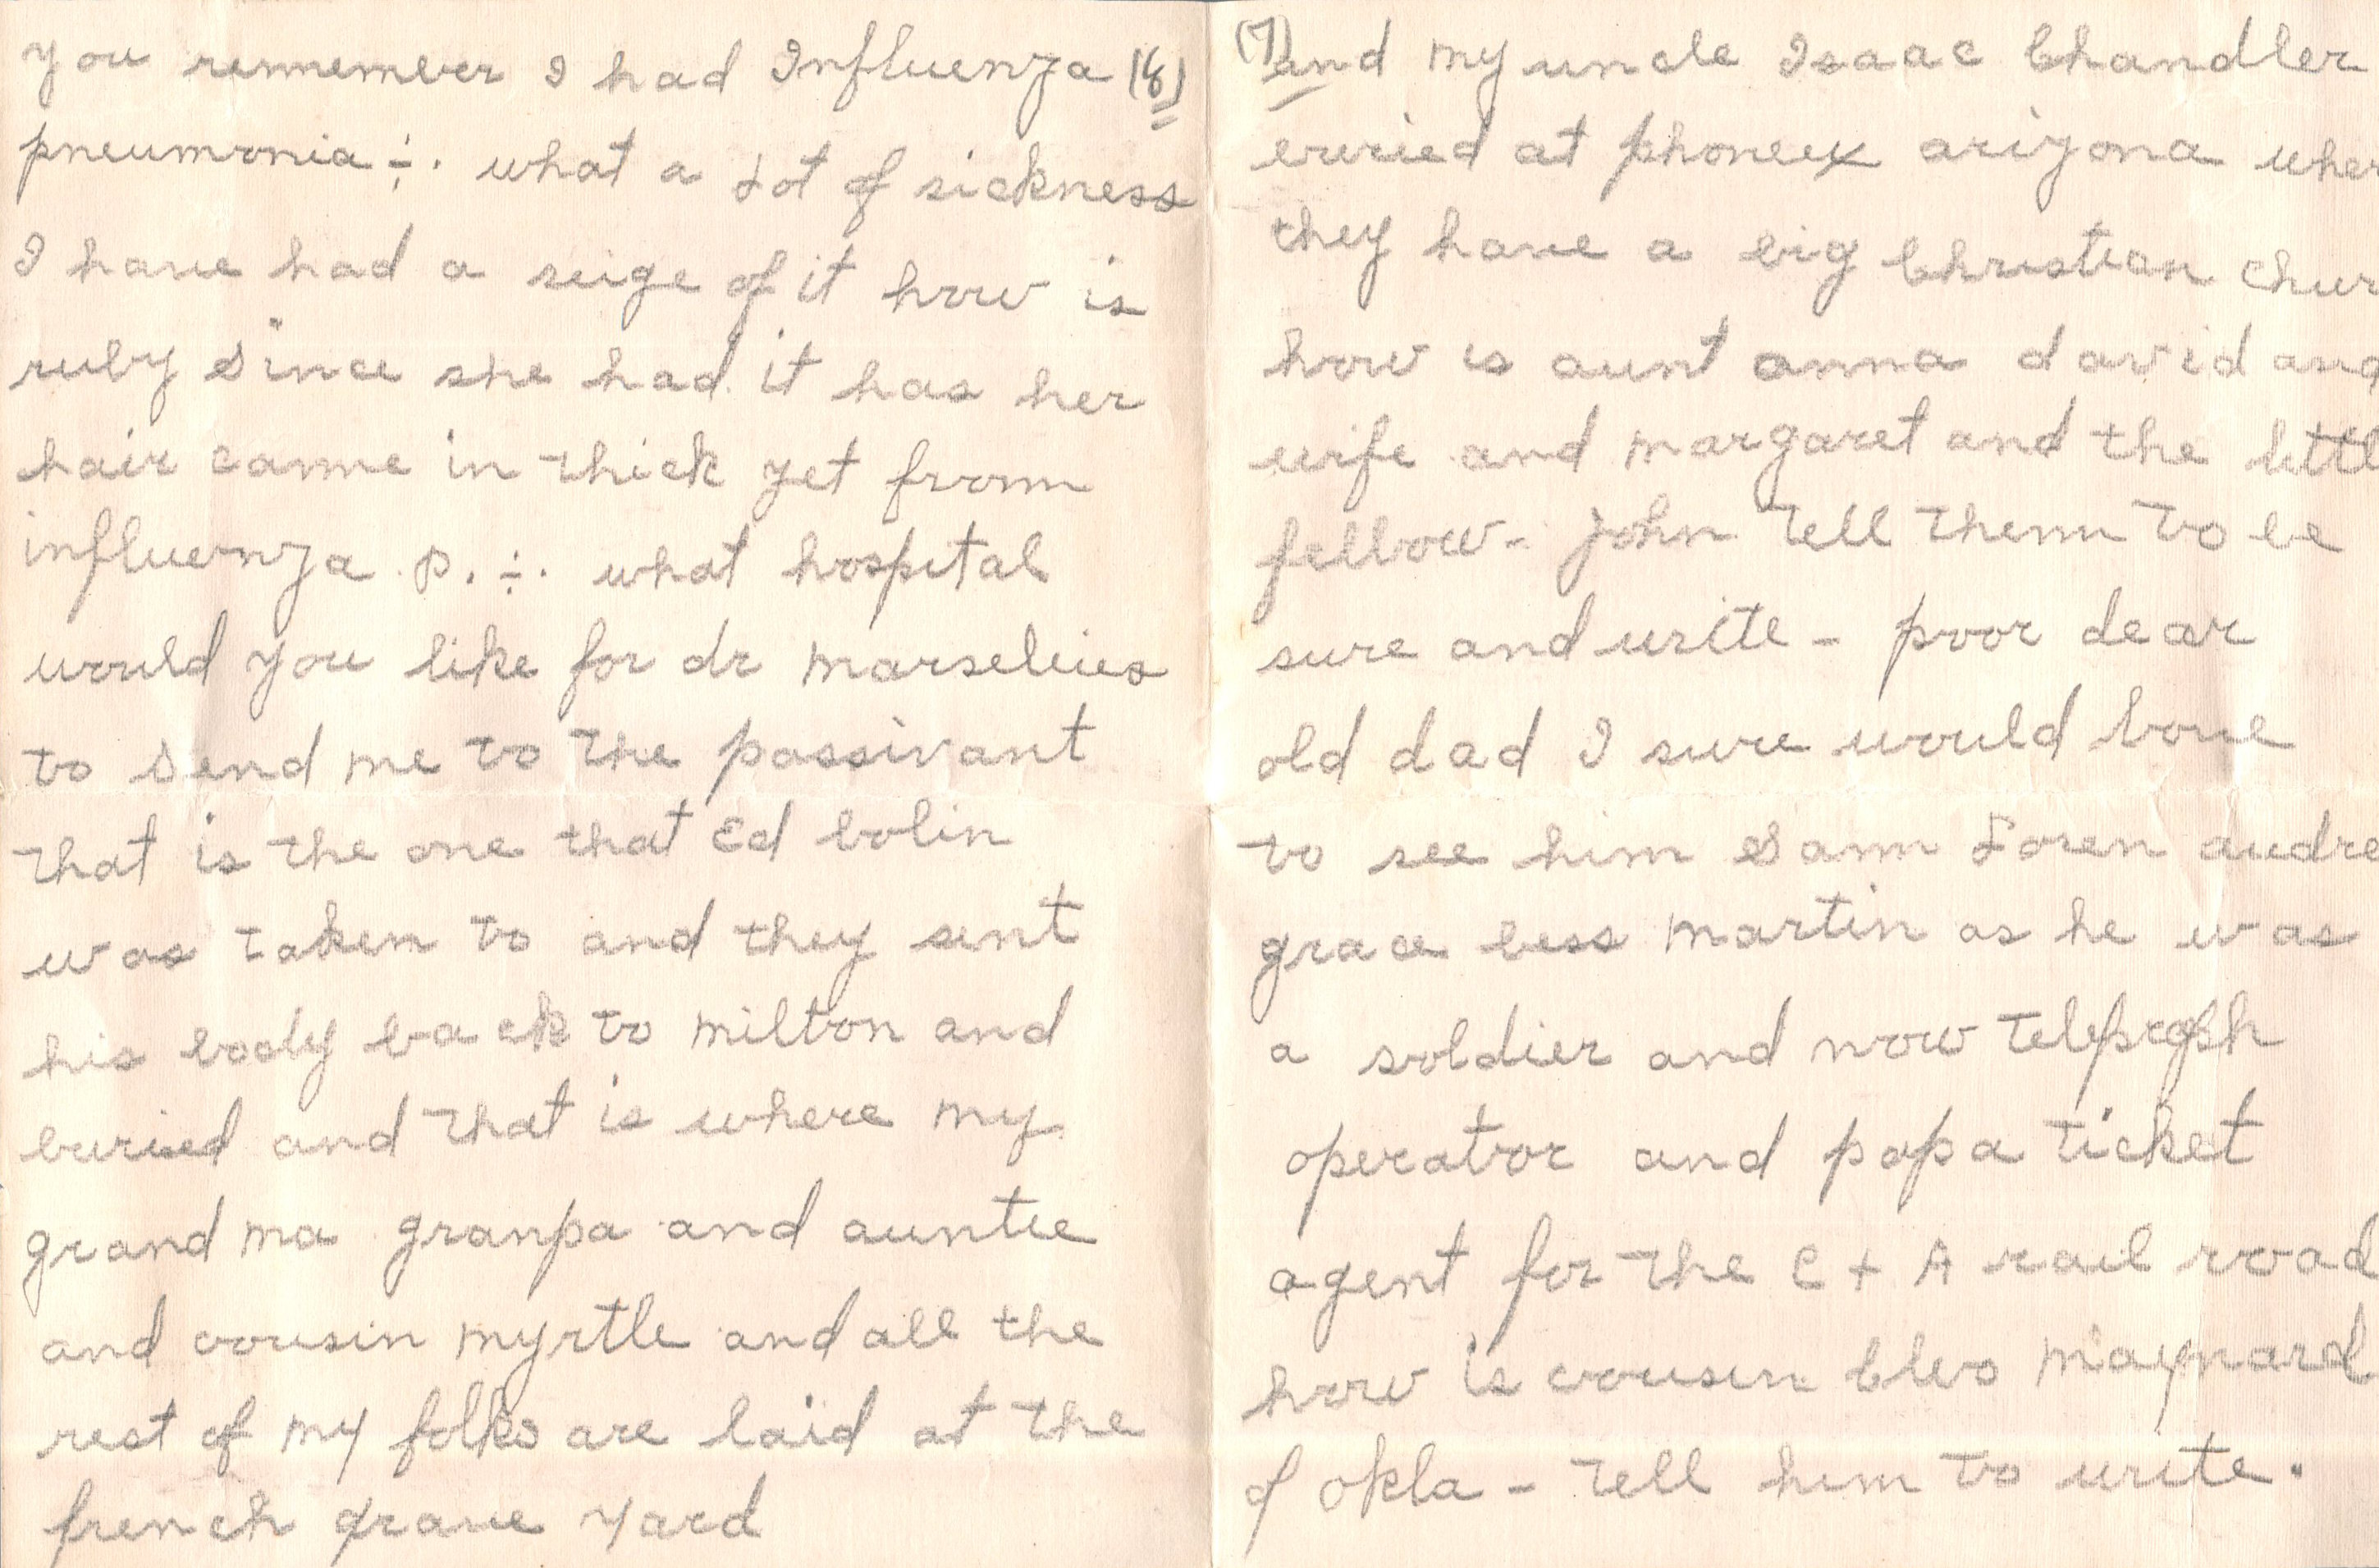 you rennember I had Influenza (8)
pneumonia ÷. what a Lot of sickness
I have had a seige of it how is
ruby Since she had it has her
hair canne in thick yet fronn
influenza p. ÷. what hospital
would you like for dr marselies
to Send me to the passivant
that is the one that Ed bolin
was taken to and they sent
his body back to milton and
buried and that is where my
grand ma granpa and auntie
and cousin myrtle and all the
rest of my folks are laid at the
french grave yard
(7) and my uncle Isaac Chandler
buried at phoneex arizona wher
they have a big Christian chur
how is aunt anna david and
wife and margaret and the littl
fellow - john tell thenn to be
sure and write - poor dear
old dad I sure would love
to see him Sann Loren audre
grace bess martin as he was
a soldier and now
operator and papa ticket
agent for the C + A rail road
how is cousin Cleo maynard
of okla - tell him to write.